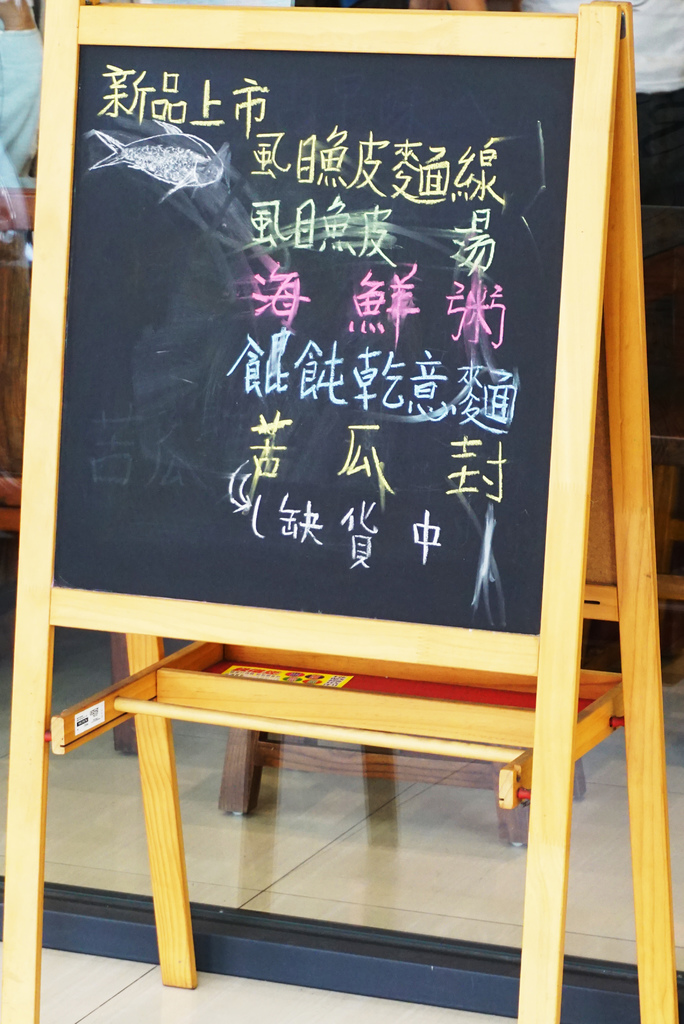 新品上市
虱目魚皮麵線
虱目魚皮 湯
海 鮮 粥
餛飩乾意麵
苦 瓜 封
缺 貨 中
苦瓜